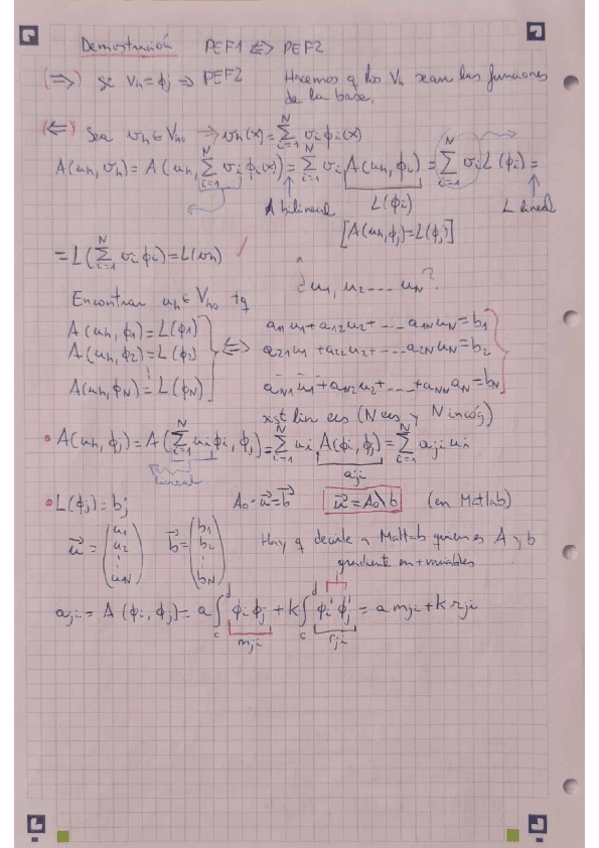 Demostración PEF1 <=> PEF2
(⇒) se Vh = ϕj ⇒ PEF2 Hacemos q los Vh sean las funciones
de la base.
(⇐) Sea vh ∈ Vh0 ⇒ vh(x) = ∑_{i=1}^{N} vi ϕi(x)
A(uh, vh) = A(uh, ∑_{i=1}^{N} vi ϕi(x)) = ∑_{i=1}^{N} vi A(uh, ϕi) = ∑_{i=1}^{N} vi L(ϕi) =
A bilineal L(ϕi) L lineal
[A(uh, ϕj) = L(ϕj)]
= L(∑_{i=1}^{N} vi ϕi) = L(vh) ✓
¿ u1, u2 --- uN ?
Encontrar uh ∈ Vh0 tq
A(uh, ϕ1) = L(ϕ1) a11 u1 + a12 u2 + --- a1N uN = b1
A(uh, ϕ2) = L(ϕ2) <=> a21 u1 + a22 u2 + --- a2N uN = b2
A(uh, ϕN) = L(ϕN) aN1 u1 + aN2 u2 + --- + aNN aN = bN
lin ecs (N ecs y N incóg)
• A(uh, ϕj) = A(∑_{i=1}^{N} ui ϕi, ϕj) = ∑_{i=1}^{N} ui A(ϕi, ϕj) = ∑_{i=1}^{N} aji ui
lineal aji
• L(ϕj) = bj A0 · u⃗ = b⃗ u⃗ = A0\b (en Matlab)
u⃗ = (u1 u2 ⋮ uN) b⃗ = (b1 b2 ⋮ bN) Hay q decirle a Matlab quien es A y b
gradiente en + variables
aji = A(ϕi, ϕj) = a ∫_c^d ϕi ϕj + k ∫_c^d ϕi' ϕj' = a mji + k rji
mji rji